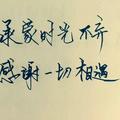 承蒙时光不弃
感谢一切相遇